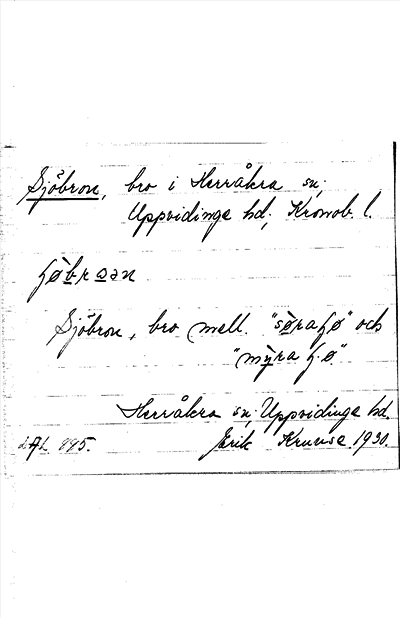 Sjöbron, bro i Herråkra sn,
Uppvidinge hd, Kronob. l.
ʃøbrɷan
Sjöbron, bro mell. "sø̀raʃø" och
"mỳraʃø".
Herråkra sn, Uppvidinge hd.
Erik Kruuse 1930.